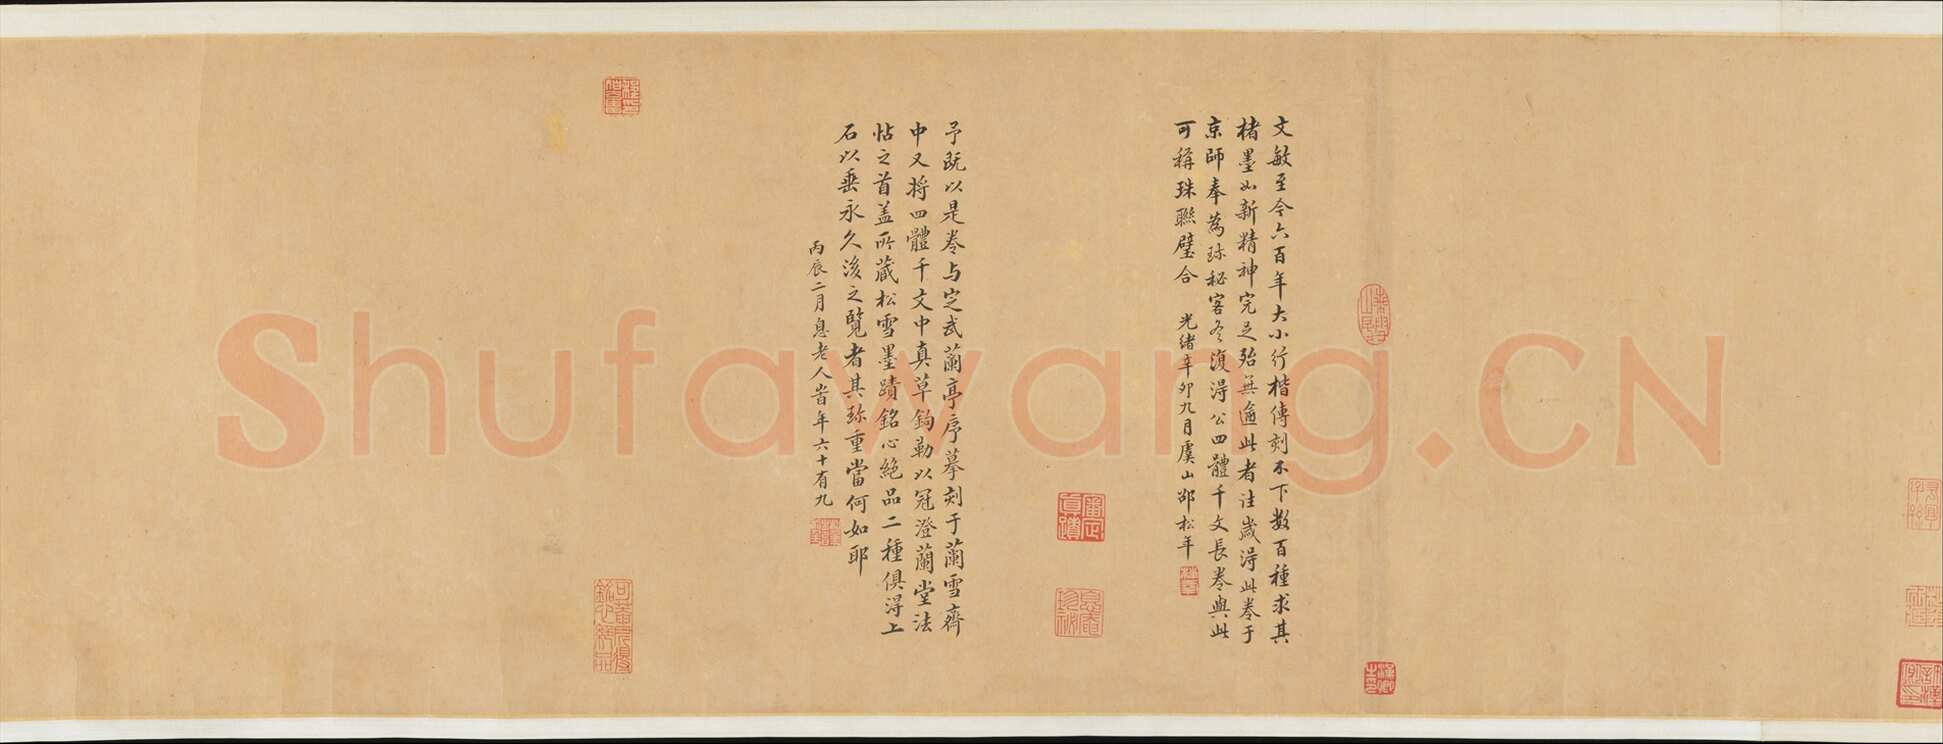 文敏至今六百年大小行楷傳刻不下數百種求其
楮墨如新精神完足殆無逾此者往歲得此卷于
京師奉為珍秘客冬復得公四體千文長卷與此
可稱珠聯璧合 光緒辛卯九月虞山邵松年
予既以是卷与定武蘭亭序摹刻于蘭雪齋
中又將四體千文中真草鉤勒以冠澄蘭堂法
帖之首盖所藏松雪墨蹟銘心絕品二種俱得上
石以垂永久後之覽者其珍重當何如耶
丙辰二月息老人時年六十有九
Shufawang.CN